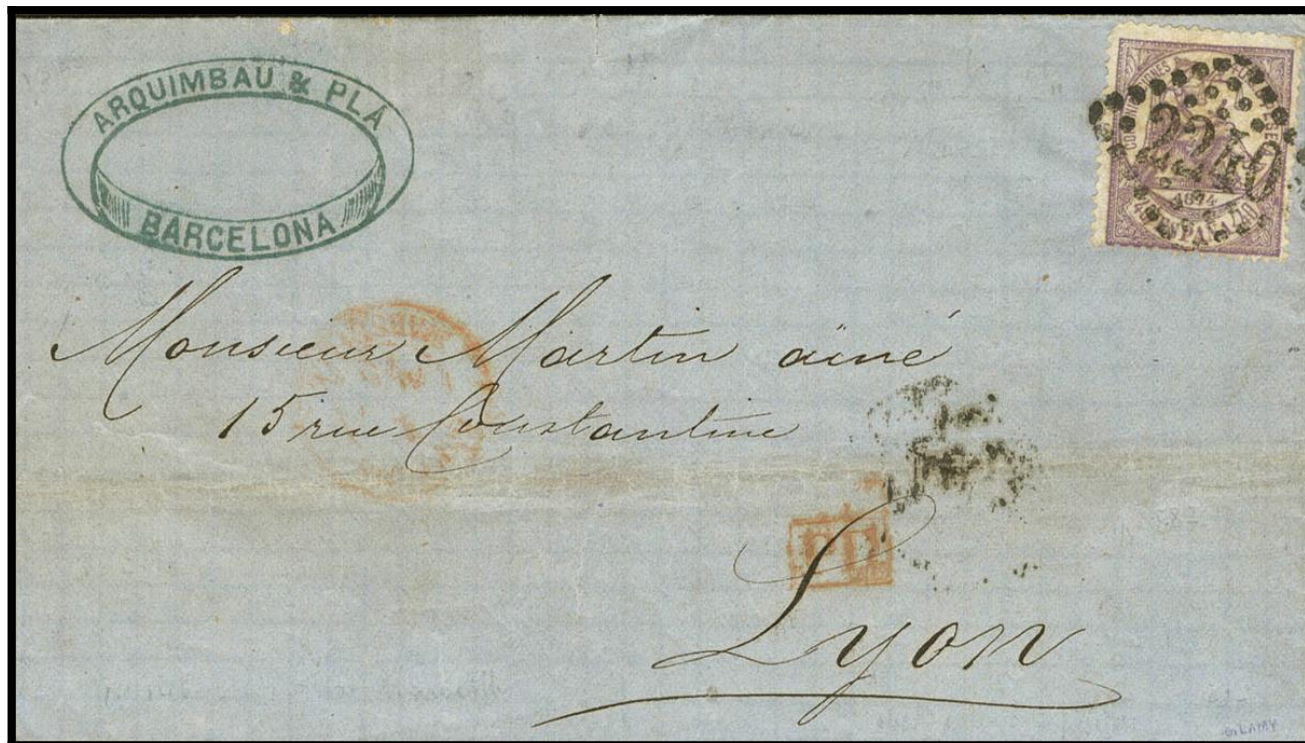 ARQUIMBAU & PLÁ
BARCELONA
2240
1874
40 ESPAÑA 40
Monsieur Martin ainé
15 rue Constantine
PD
Lyon